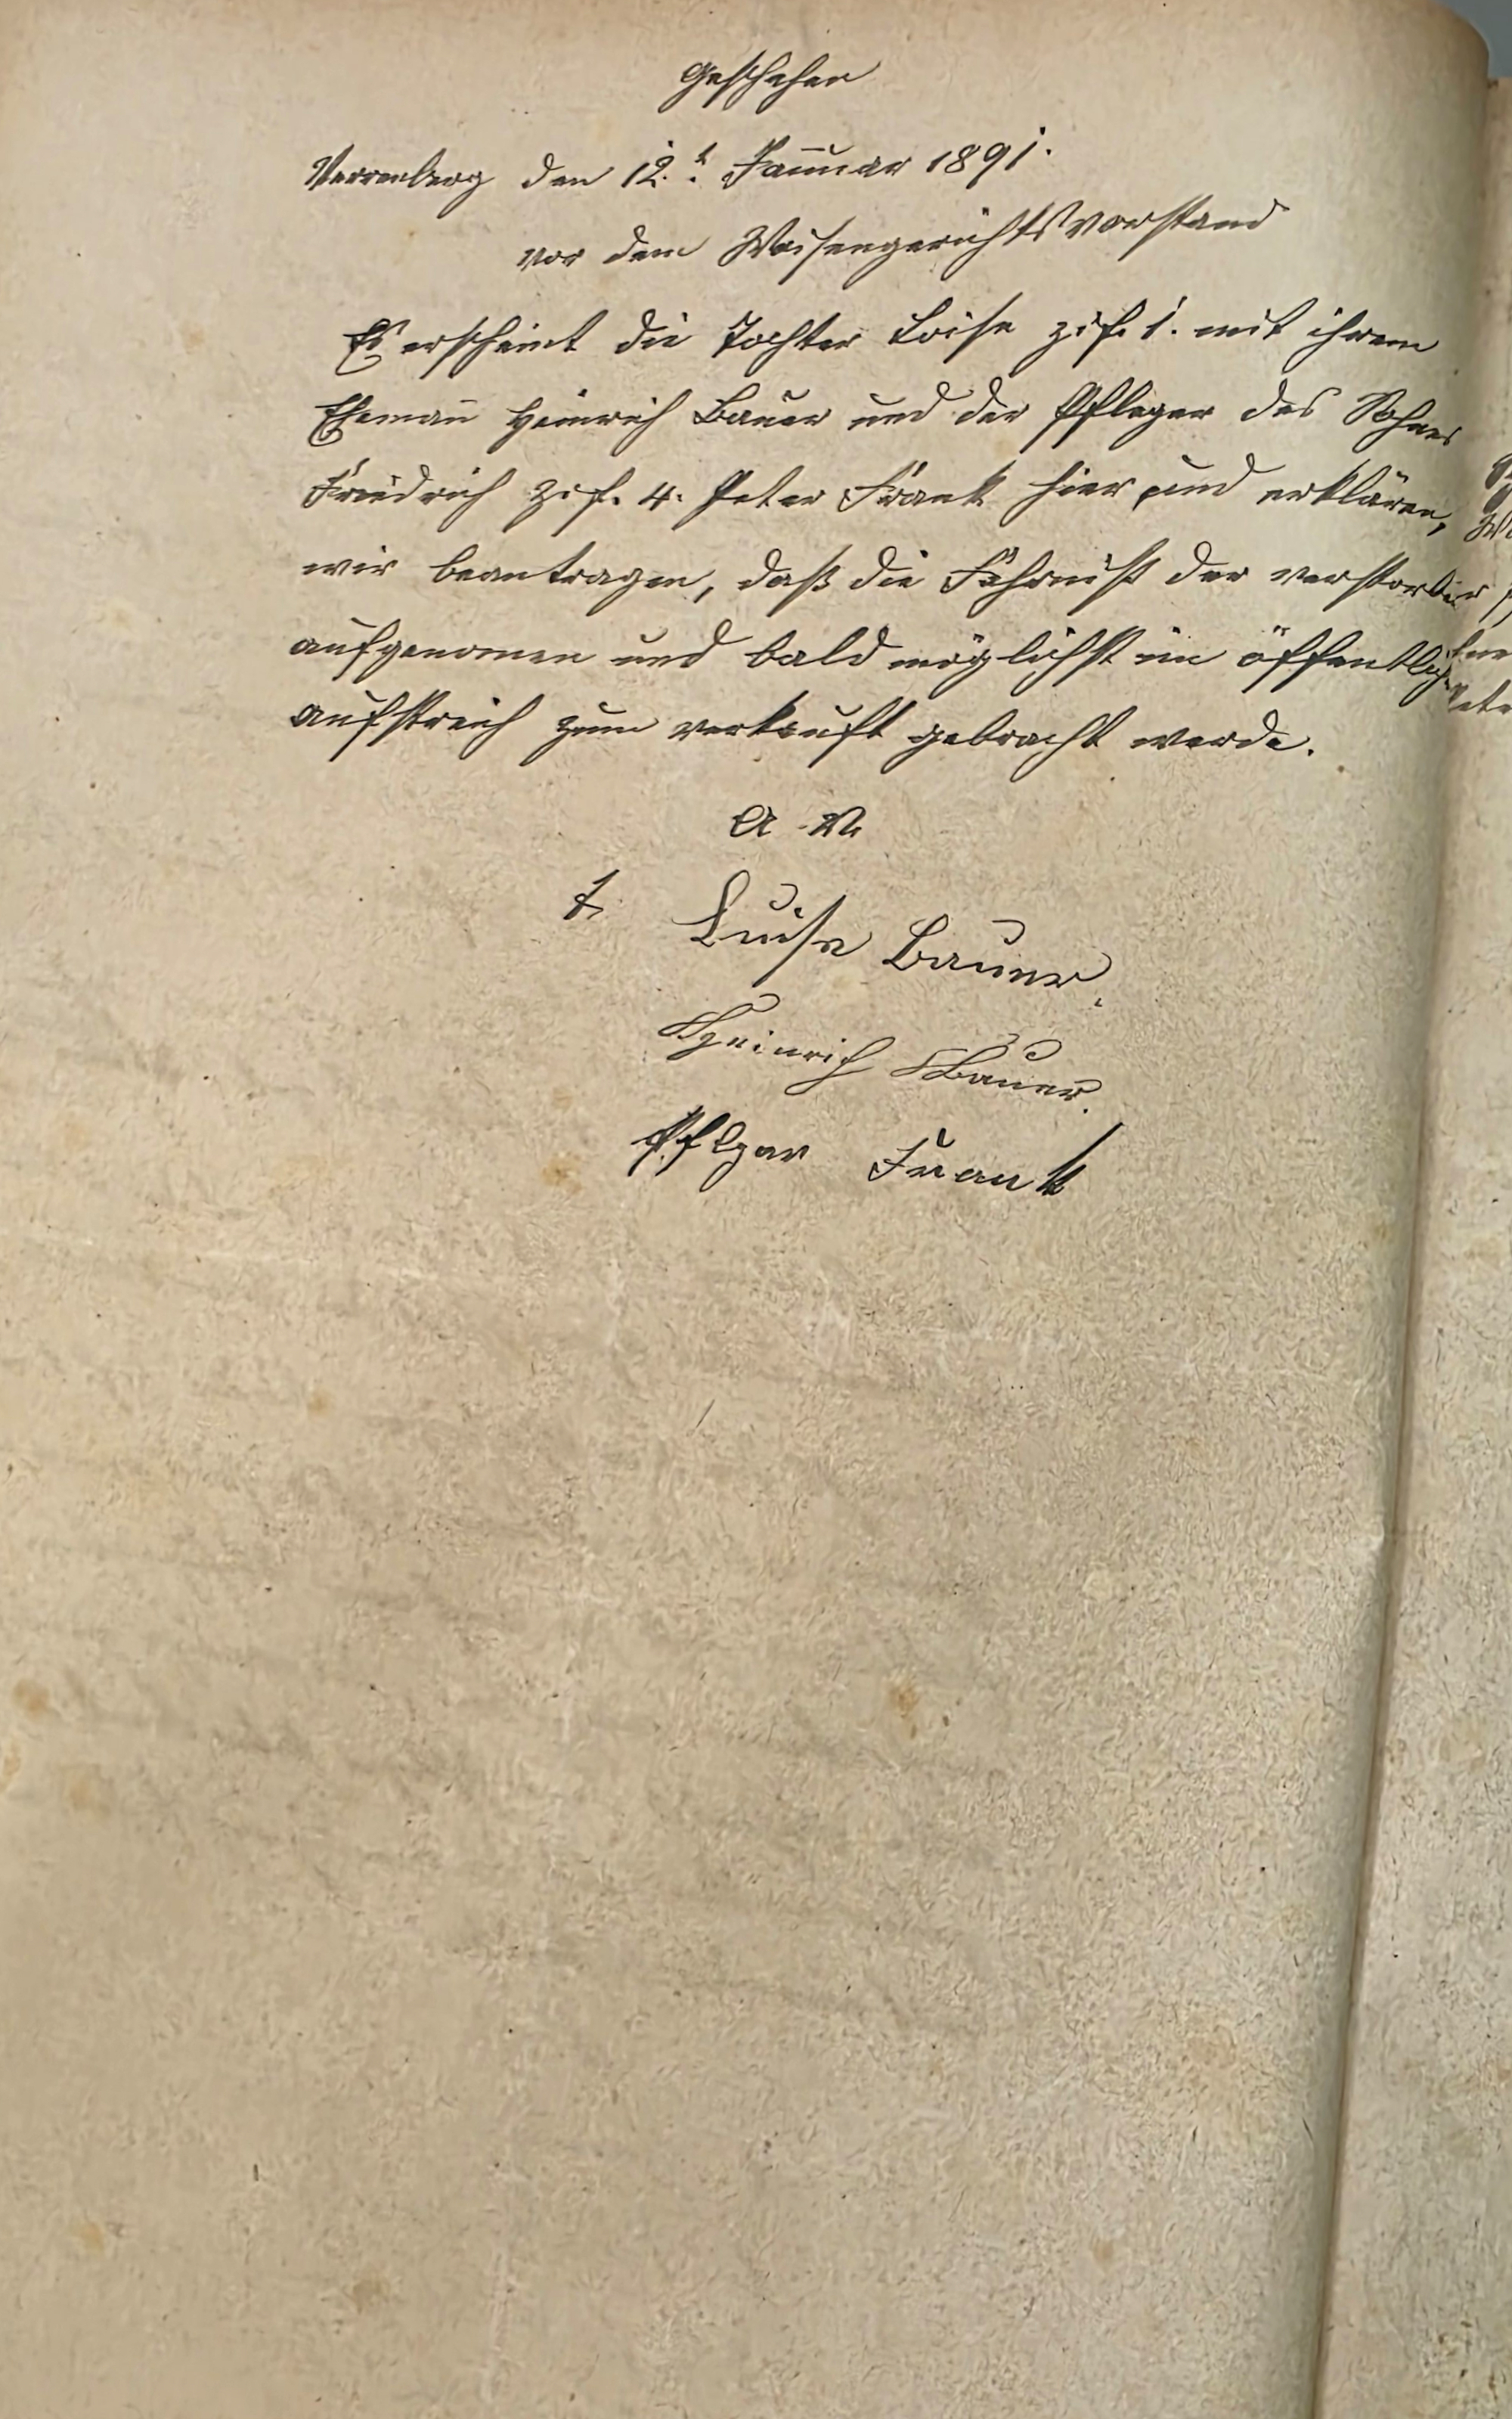 Geschehen
Verrenberg den 12.t Januar 1891.
vor dem Waisengerichtsvorstand
Es erscheint die Tochter Loise zif. 1. mit ihrem
Ehemañ Heinrich Bauer und der Pfleger des Sohnes
Friedrich zif. 4. Peter Frank hier und erklären,
wir beantragen, daß die Fahrniß der verstorbe
aufgenomen und bald möglichst im öffentlichen
aufstreich zum verkauft gebracht werde.
A. V.
t. Luise Bauer.
Heinrich Bauer.
Pflgar Frank